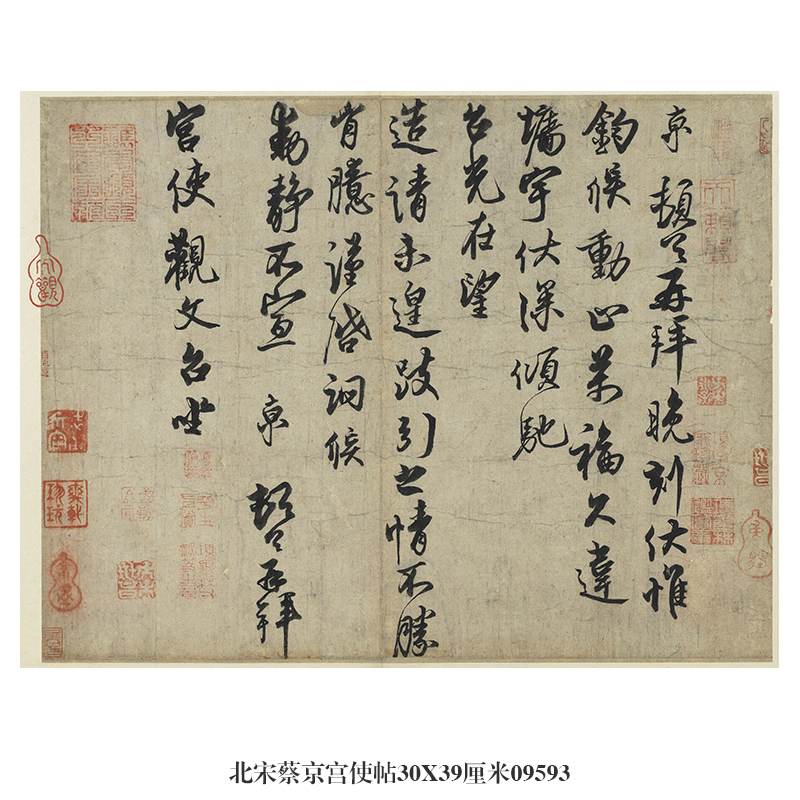 京頓首再拜晚刻伏惟
鈞候動止萬福久違
墉宇伏深傾馳
台光在望
造請未遑跂引之情不勝
肯臆謹啓詗候
動靜不宣 京頓首再拜
宮使觀文台坐
北宋蔡京宫使帖30X39厘米09593